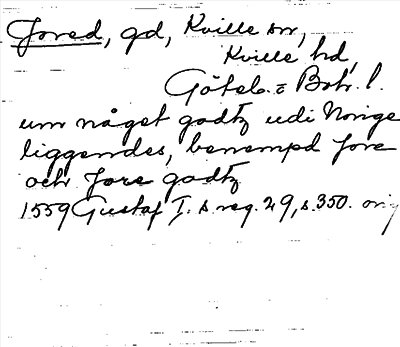 Jored, gd, Kville sn,
Kville hd,
Göteb. o Boh. l.
um någet godtz udi Norige
liggendes, benempd Jore
och Jore godtz
1559 Gustaf I. s reg. 29, s. 350. orig